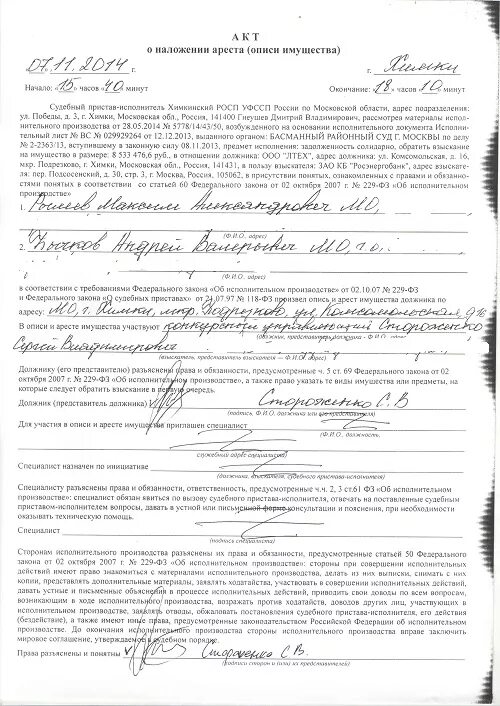 АКТ
о наложении ареста (описи имущества)
07.11.2014 г. г. Химки
Начало: «15» часов «40» минут Окончание: «18» часов «10» минут
Судебный пристав-исполнитель Химкинский РОСП УФССП России по Московской области, адрес подразделения:
ул. Победы, д. 3, г. Химки, Московская обл., Россия, 141400 Гнеушев Дмитрий Владимирович, рассмотрев материалы испол-
нительного производства от 28.05.2014 № 5778/14/43/50, возбужденного на основании исполнительного документа Исполни-
тельный лист № ВС № 029929264 от 12.12.2013, выданного органом: БАСМАННЫЙ РАЙОННЫЙ СУД Г. МОСКВЫ по делу
№ 2-2363/13, вступившему в законную силу 08.11.2013, предмет исполнения: задолженность солидарно, обратить взыскание
на имущество в размере: 8 533 476,6 руб., в отношении должника: ООО "ЛТЕХ", адрес должника: ул. Комсомольская, д. 16,
мкр. Подрезково, г. Химки, Московская обл., Россия, 141431, в пользу взыскателя: ЗАО КБ "Росэнергобанк", адрес взыскате-
ля: пер. Подсосенский, д. 30, стр. 3, г. Москва, Россия, 105062, в присутствии понятых, ознакомленных с правами и обязанно-
стями понятых в соответствии со статьей 60 Федерального закона от 02 октября 2007 г. № 229-ФЗ «Об исполнительном
производстве»
1. Максим Александрович МО,
(Ф.И.О., адрес)
2. Бычков Андрей Валерьевич МО, г.о.
(Ф.И.О., адрес)
в соответствии с требованиями Федерального закона «Об исполнительном производстве» от 02.10.07 № 229-ФЗ
и Федерального закона «О судебных приставах» от 21.07.97 № 118-ФЗ произвел опись и арест имущества должника по
адресу: МО, г. Химки, мкр. Подрезково, ул. Комсомольская, д. 16
В описи и аресте имущества участвуют конкурсный управляющий Стороженко
(должник, представитель должника - Ф.И.О., адрес)
Сергей Владимирович
(взыскатель, представитель взыскателя — Ф.И.О., адрес)
Должнику (его представителю) разъяснены права и обязанности, предусмотренные ч. 5 ст. 69 Федерального закона от 02
октября 2007 г. № 229-ФЗ «Об исполнительном производстве», а также право указать те виды имущества или предметы, на
которые следует обратить взыскание в первую очередь.
Должник (представитель должника) Стороженко С.В
(подпись, Ф.И.О. должника или его представителя)
Для участия в описи и аресте имущества приглашен специалист
(Ф.И.О., должность,
служебный адрес специалиста)
Специалист назначен по инициативе
(должника, взыскателя, судебного пристава-исполнителя)
Специалисту разъяснены права и обязанности, ответственность, предусмотренные ч.ч. 2, 3 ст.61 ФЗ «Об исполнительном
производстве»: специалист обязан явиться по вызову судебного пристава-исполнителя, отвечать на поставленные судебным
приставом-исполнителем вопросы, давать в устной или письменной форме консультации и пояснения, при необходимости
оказывать техническую помощь.
Специалист
(подпись специалиста)
Сторонам исполнительного производства разъяснены их права и обязанности, предусмотренные статьей 50 Федерального
закона от 02 октября 2007 г. № 229-ФЗ «Об исполнительном производстве»: стороны при совершении исполнительных
действий имеют право знакомиться с материалами исполнительного производства, делать из них выписки, снимать с них
копии, представлять дополнительные материалы, заявлять ходатайства, участвовать в совершении исполнительных действий,
давать устные и письменные объяснения в процессе исполнительных действий, приводить свои доводы по всем вопросам,
возникающим в ходе исполнительного производства, возражать против ходатайств, доводов других лиц, участвующих в
исполнительном производстве, заявлять отводы, обжаловать постановления судебного пристава-исполнителя, его действия
(бездействие), а также имеют иные права, предусмотренные законодательством Российской Федерации об исполнительном
производстве. До окончания исполнительного производства стороны исполнительного производства вправе заключить
мировое соглашение, утверждаемое в судебном порядке.
Права разъяснены и понятны Стороженко С.В.
(подписи сторон и (или) их представителей)